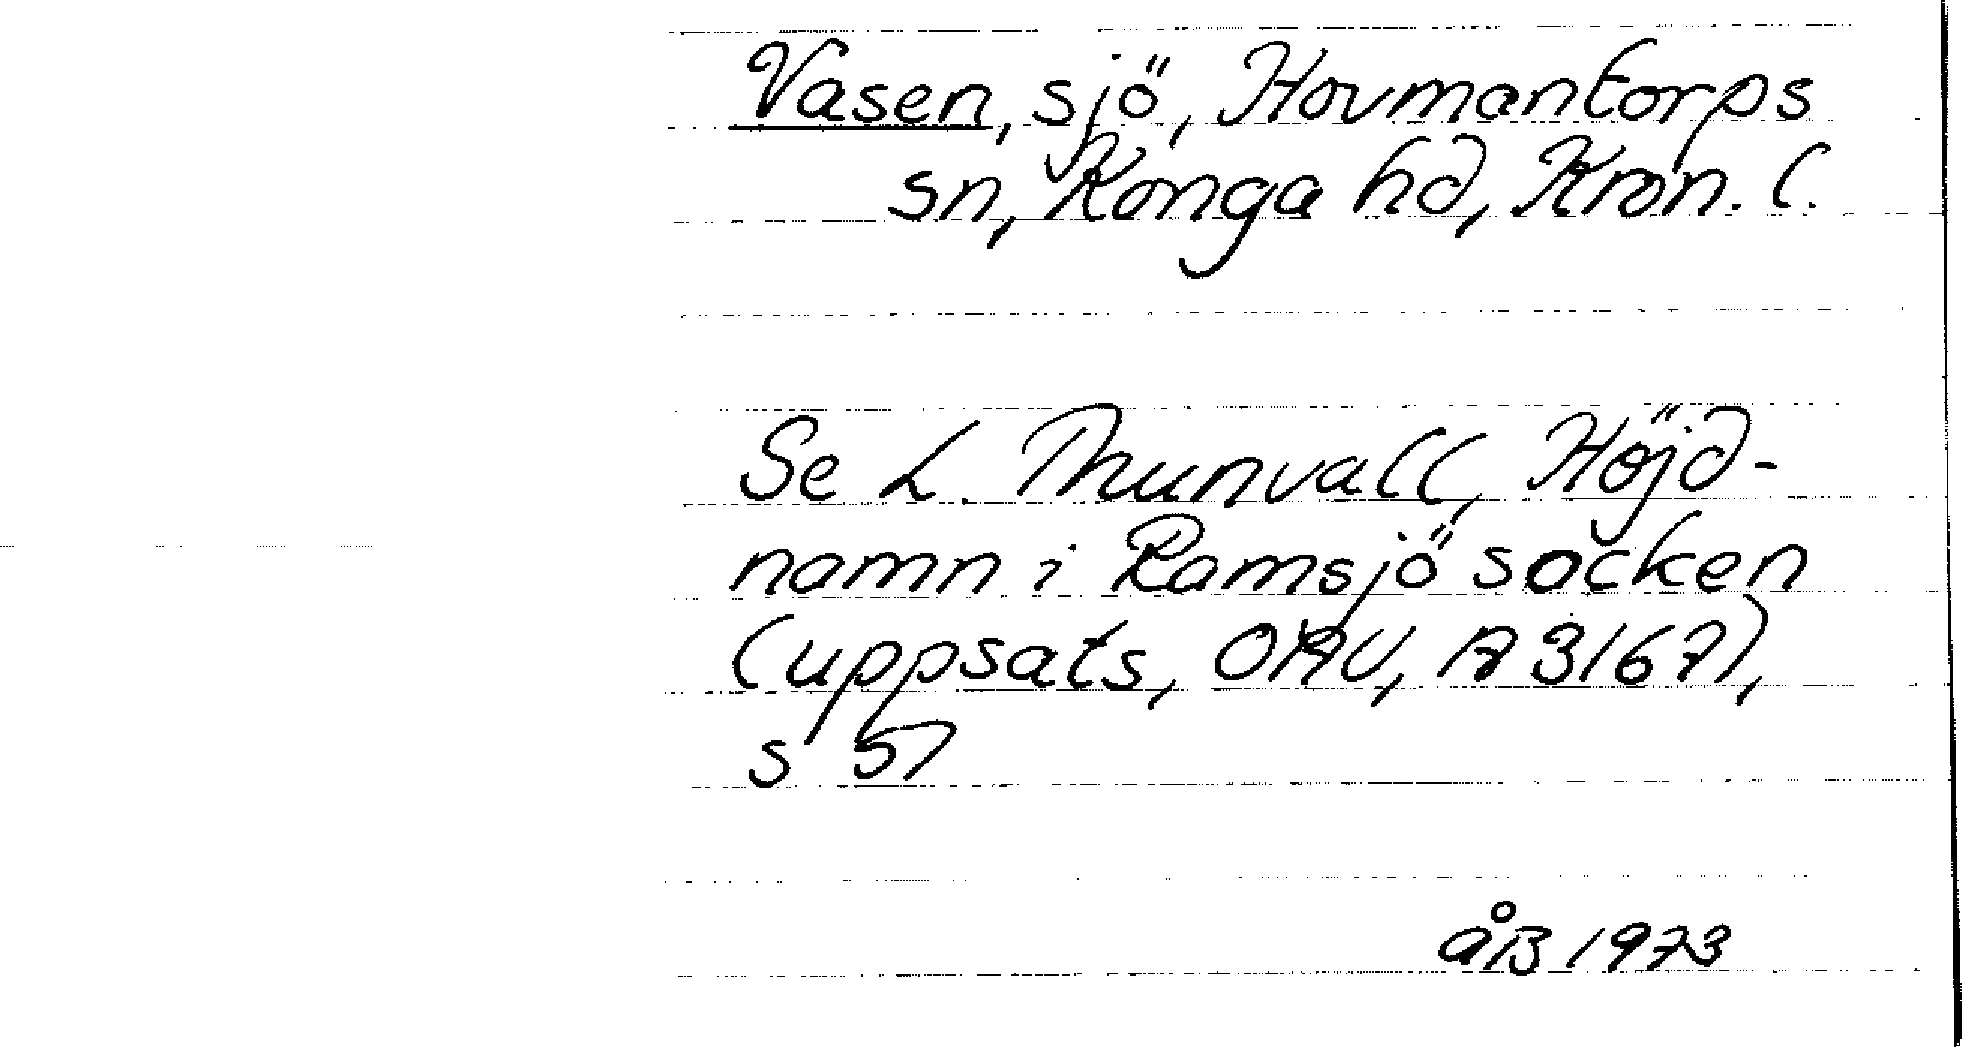 Vasen, sjö, Hovmantorps
sn, Konga hd, Kron. l.
Se L. Thunvall, Höjd-
namn i Ramsjö socken
(uppsats, OAU, A 3167),
s 57
åB 1973